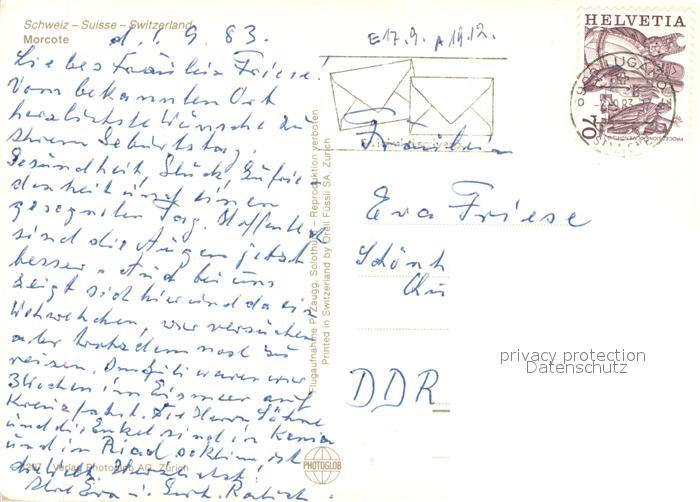 Schweiz – Suisse – Switzerland
Morcote
d. 1. 9. 83.
Liebes Fräulein Friese!
Vom bekannten Ort
herzlichste Wünsche zu
Ihrem Geburtstag,
Gesundheit, Glück, Zufrie-
denheit und einen
gesegneten Tag. Hoffentlich
sind die Augen jetzt
besser. Auch bei uns
zeigt sich hier und da ein
Wehwehchen, wir versuchen
aber trotzdem noch zu
reisen. Im Juli waren wir
3 Wochen im Eismeer auf
Kreuzfahrt. Die Herren Söhne
und die Enkel sind in Kenia
und in Riad so
die Welt. Herzlichst
Ihre Eva u. Gerh.
Verlag Photoglob AG, Zürich
Flugaufnahme P. Zaugg, Solothurn – Reproduktion verboten
Printed in Switzerland by Orell Füssli SA, Zürich
PHOTOGLOB
E 17.9. A 19.12.
HELVETIA
70
LUGANO
Fräulein
Eva Friese
DDR
privacy protection
Datenschutz